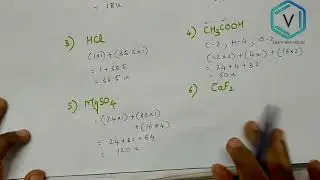 = 18 u
3) HCl
(1x1) + (35.5x1)
= 1 + 35.5
= 36.5 u
4) CH3COOH
C-2, H-4, O-2
(12x2) + (4x1) + (16x2)
= 24 + 4 + 32
= 60 u
5) MgSO4
= (24x1) + (32x1)
+ (16x4)
= 24 + 32 + 64
= 120 u
6) CaF2
V